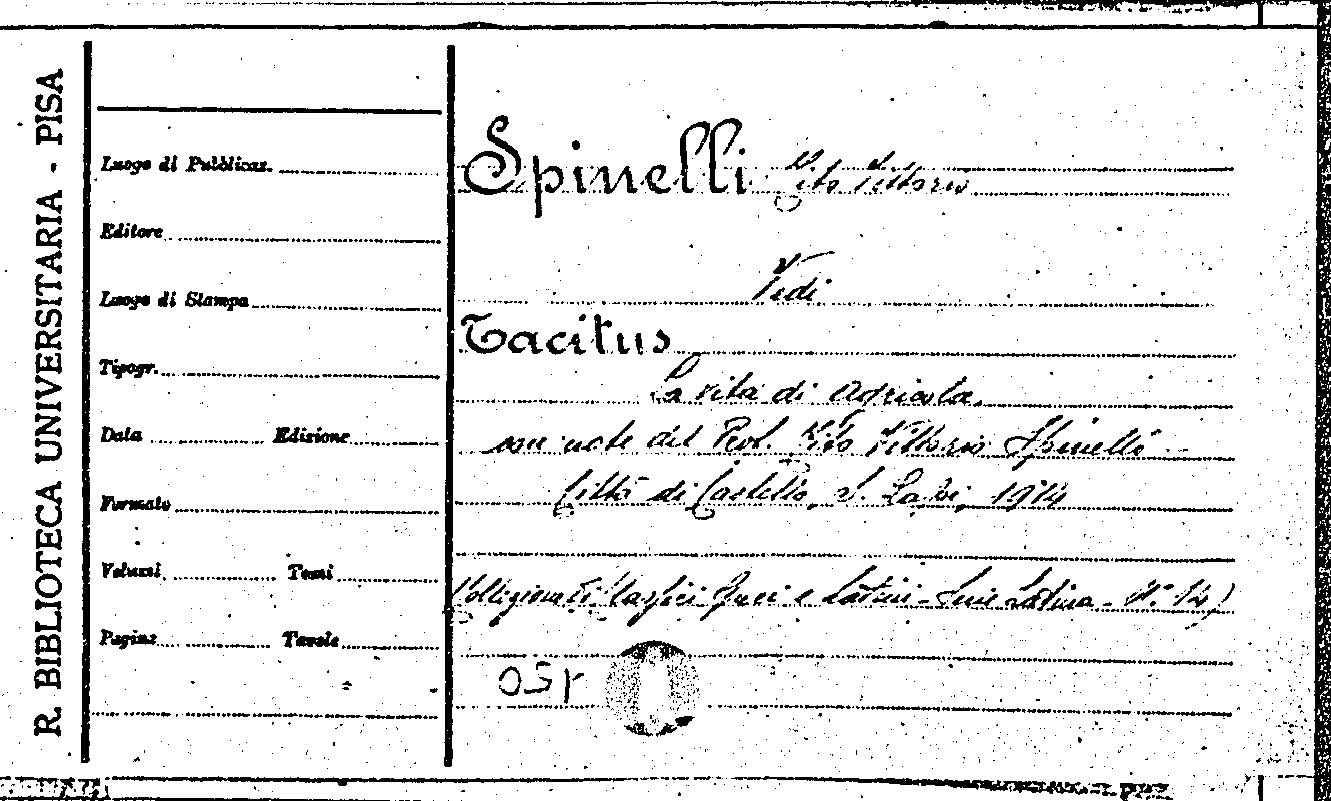 R. BIBLIOTECA UNIVERSITARIA - PISA
Luogo di Pubblicaz.
Editore
Luogo di Stampa
Tipogr.
Data Edizione
Formato
Volumi Tomi
Pagine Tavole
Spinelli Vito Vittorio
Vedi
Tacitus
La vita di Agricola.
con note del Prof. Vito Vittorio Spinelli
Città di Castello, S. Lapi, 1914
(Collezione di Classici Greci e Latini - Serie Latina - N.° 14)